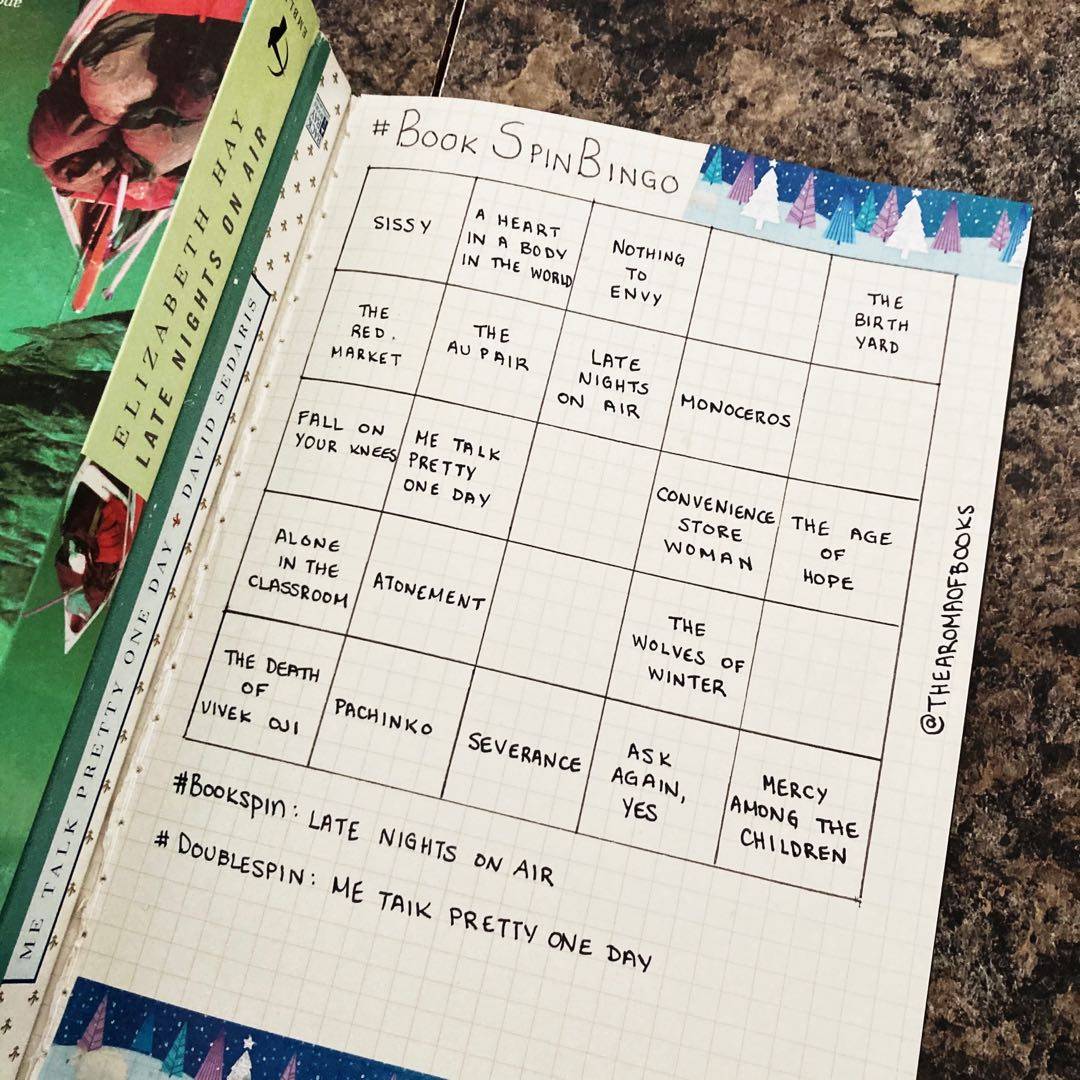 ELIZABETH HAY
LATE NIGHTS ON AIR
ME TALK PRETTY ONE DAY ★ DAVID SEDARIS
#BOOK SPINBINGO
SISSY
A HEART
IN A BODY
IN THE WORLD
NOTHING
TO
ENVY
THE
BIRTH
YARD
THE
RED.
MARKET
THE
AU PAIR
LATE
NIGHTS
ON AIR
MONOCEROS
FALL ON
YOUR KNEES
ME TALK
PRETTY
ONE DAY
CONVENIENCE
STORE
WOMAN
THE AGE
OF
HOPE
ALONE
IN THE
CLASSROOM
ATONEMENT
THE
WOLVES OF
WINTER
THE DEATH
OF
VIVEK OJI
PACHINKO
SEVERANCE
ASK
AGAIN,
YES
MERCY
AMONG THE
CHILDREN
#BOOKSPIN: LATE NIGHTS ON AIR
# DOUBLESPIN: ME TALK PRETTY ONE DAY
@THEAROMAOFBOOKS